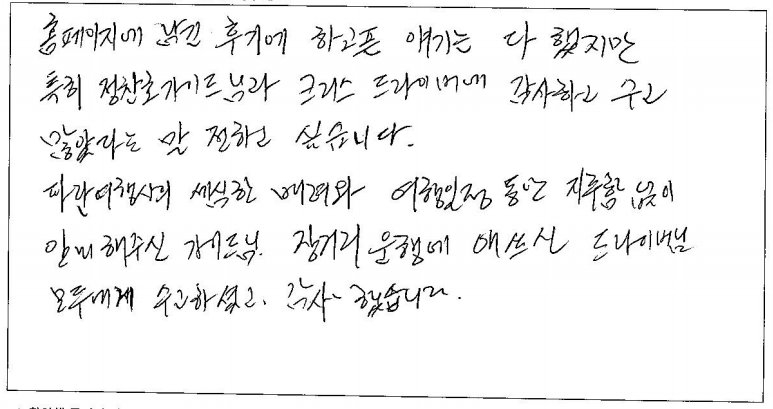 홈페이지에 남긴 후기에 하고픈 얘기는 다 했지만
특히 정찬호가이드님과 크리스 드라이버에 감사하고 수고
많았다는 말 전하고 싶습니다.
파란여행사의 세심한 배려와 여행일정 동안 지루함 없이
안내해주신 가이드님. 장거리 운행에 애쓰신 드라이버님
모두에게 수고하셨고. 감사했습니다.